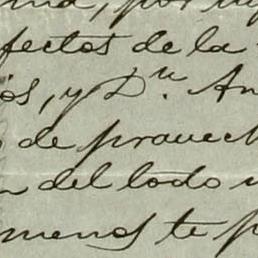 por
fectos de la
os, y Dn. An
de provech
del lodo
menos te p